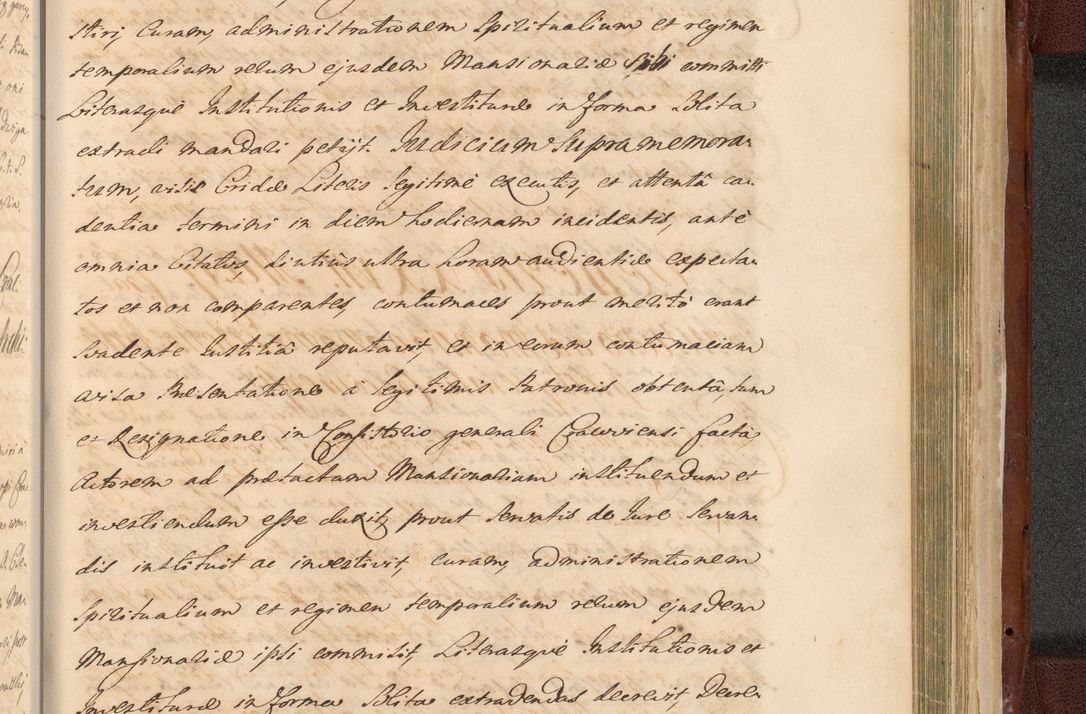 stiri, Curam, administrationem Spiritualium et regimen
temporalium rerum ejusdem Mansionariæ sibi committi
Literasquè Institutionis et Investituræ in forma Solita
extradi mandari petijt. Iudicium Supramemora-
tum, visis Cridæ Literis legitimè executis, et attentâ ca-
dentia termini in diem hodiernam incidentis, antè
omnia Citatos, diutiùs ultra horam audientiæ expecta-
tos et non comparentes, contumaces prout meritò erant
Svadente Iustitiâ reputavit, et in eorum contumaciam
visa Præsentatione à legitimis Patronis obtentâ, tum
et Resignatione in Consistorio generali Cracoviensi factâ,
Actorem ad prætactam Mansionariam instituendum et
investiendum esse duxit, prout Servatis de Iure Servan-
dis instituit ac investivit, curam, administrationem
Spiritualium et regimen temporalium rerum ejusdem
Mansionariæ ipsi commisit, Literasquè Institutionis et
Investituræ in forma Solita extradendas decrevit, Decre-